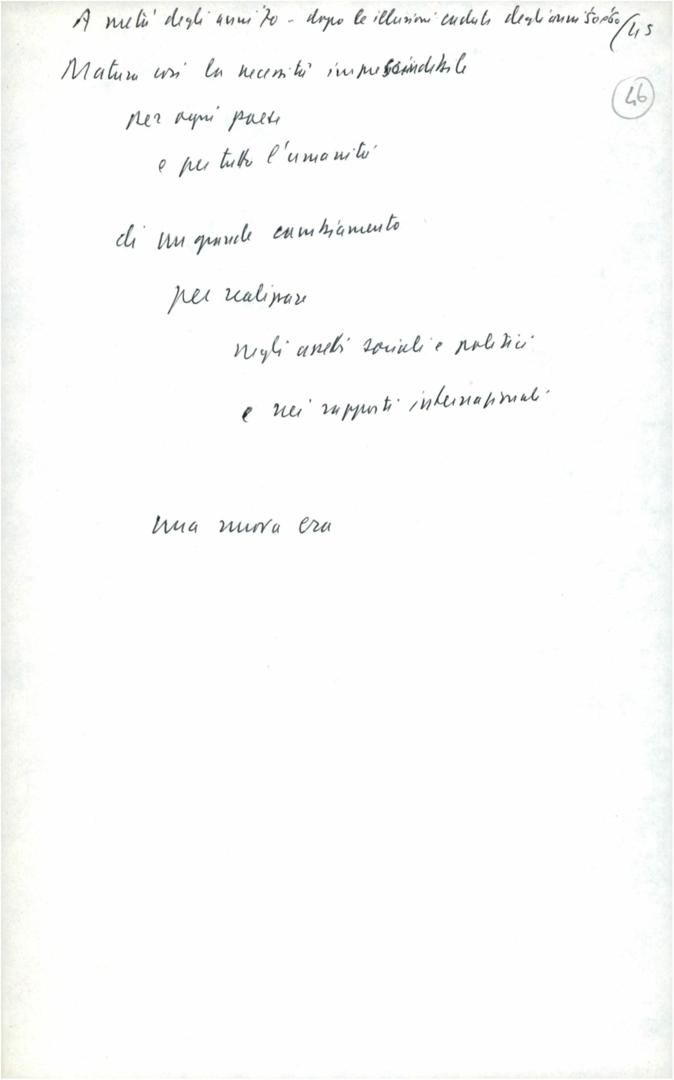 A metà degli anni '70 - dopo le illusioni cadute degli anni '50 e '60 /45
46
Matura così la necessità imprescindibile
per ogni paese
e per tutta l'umanità
di un grande cambiamento
per realizzare
negli assetti sociali e politici
e nei rapporti internazionali
una nuova era